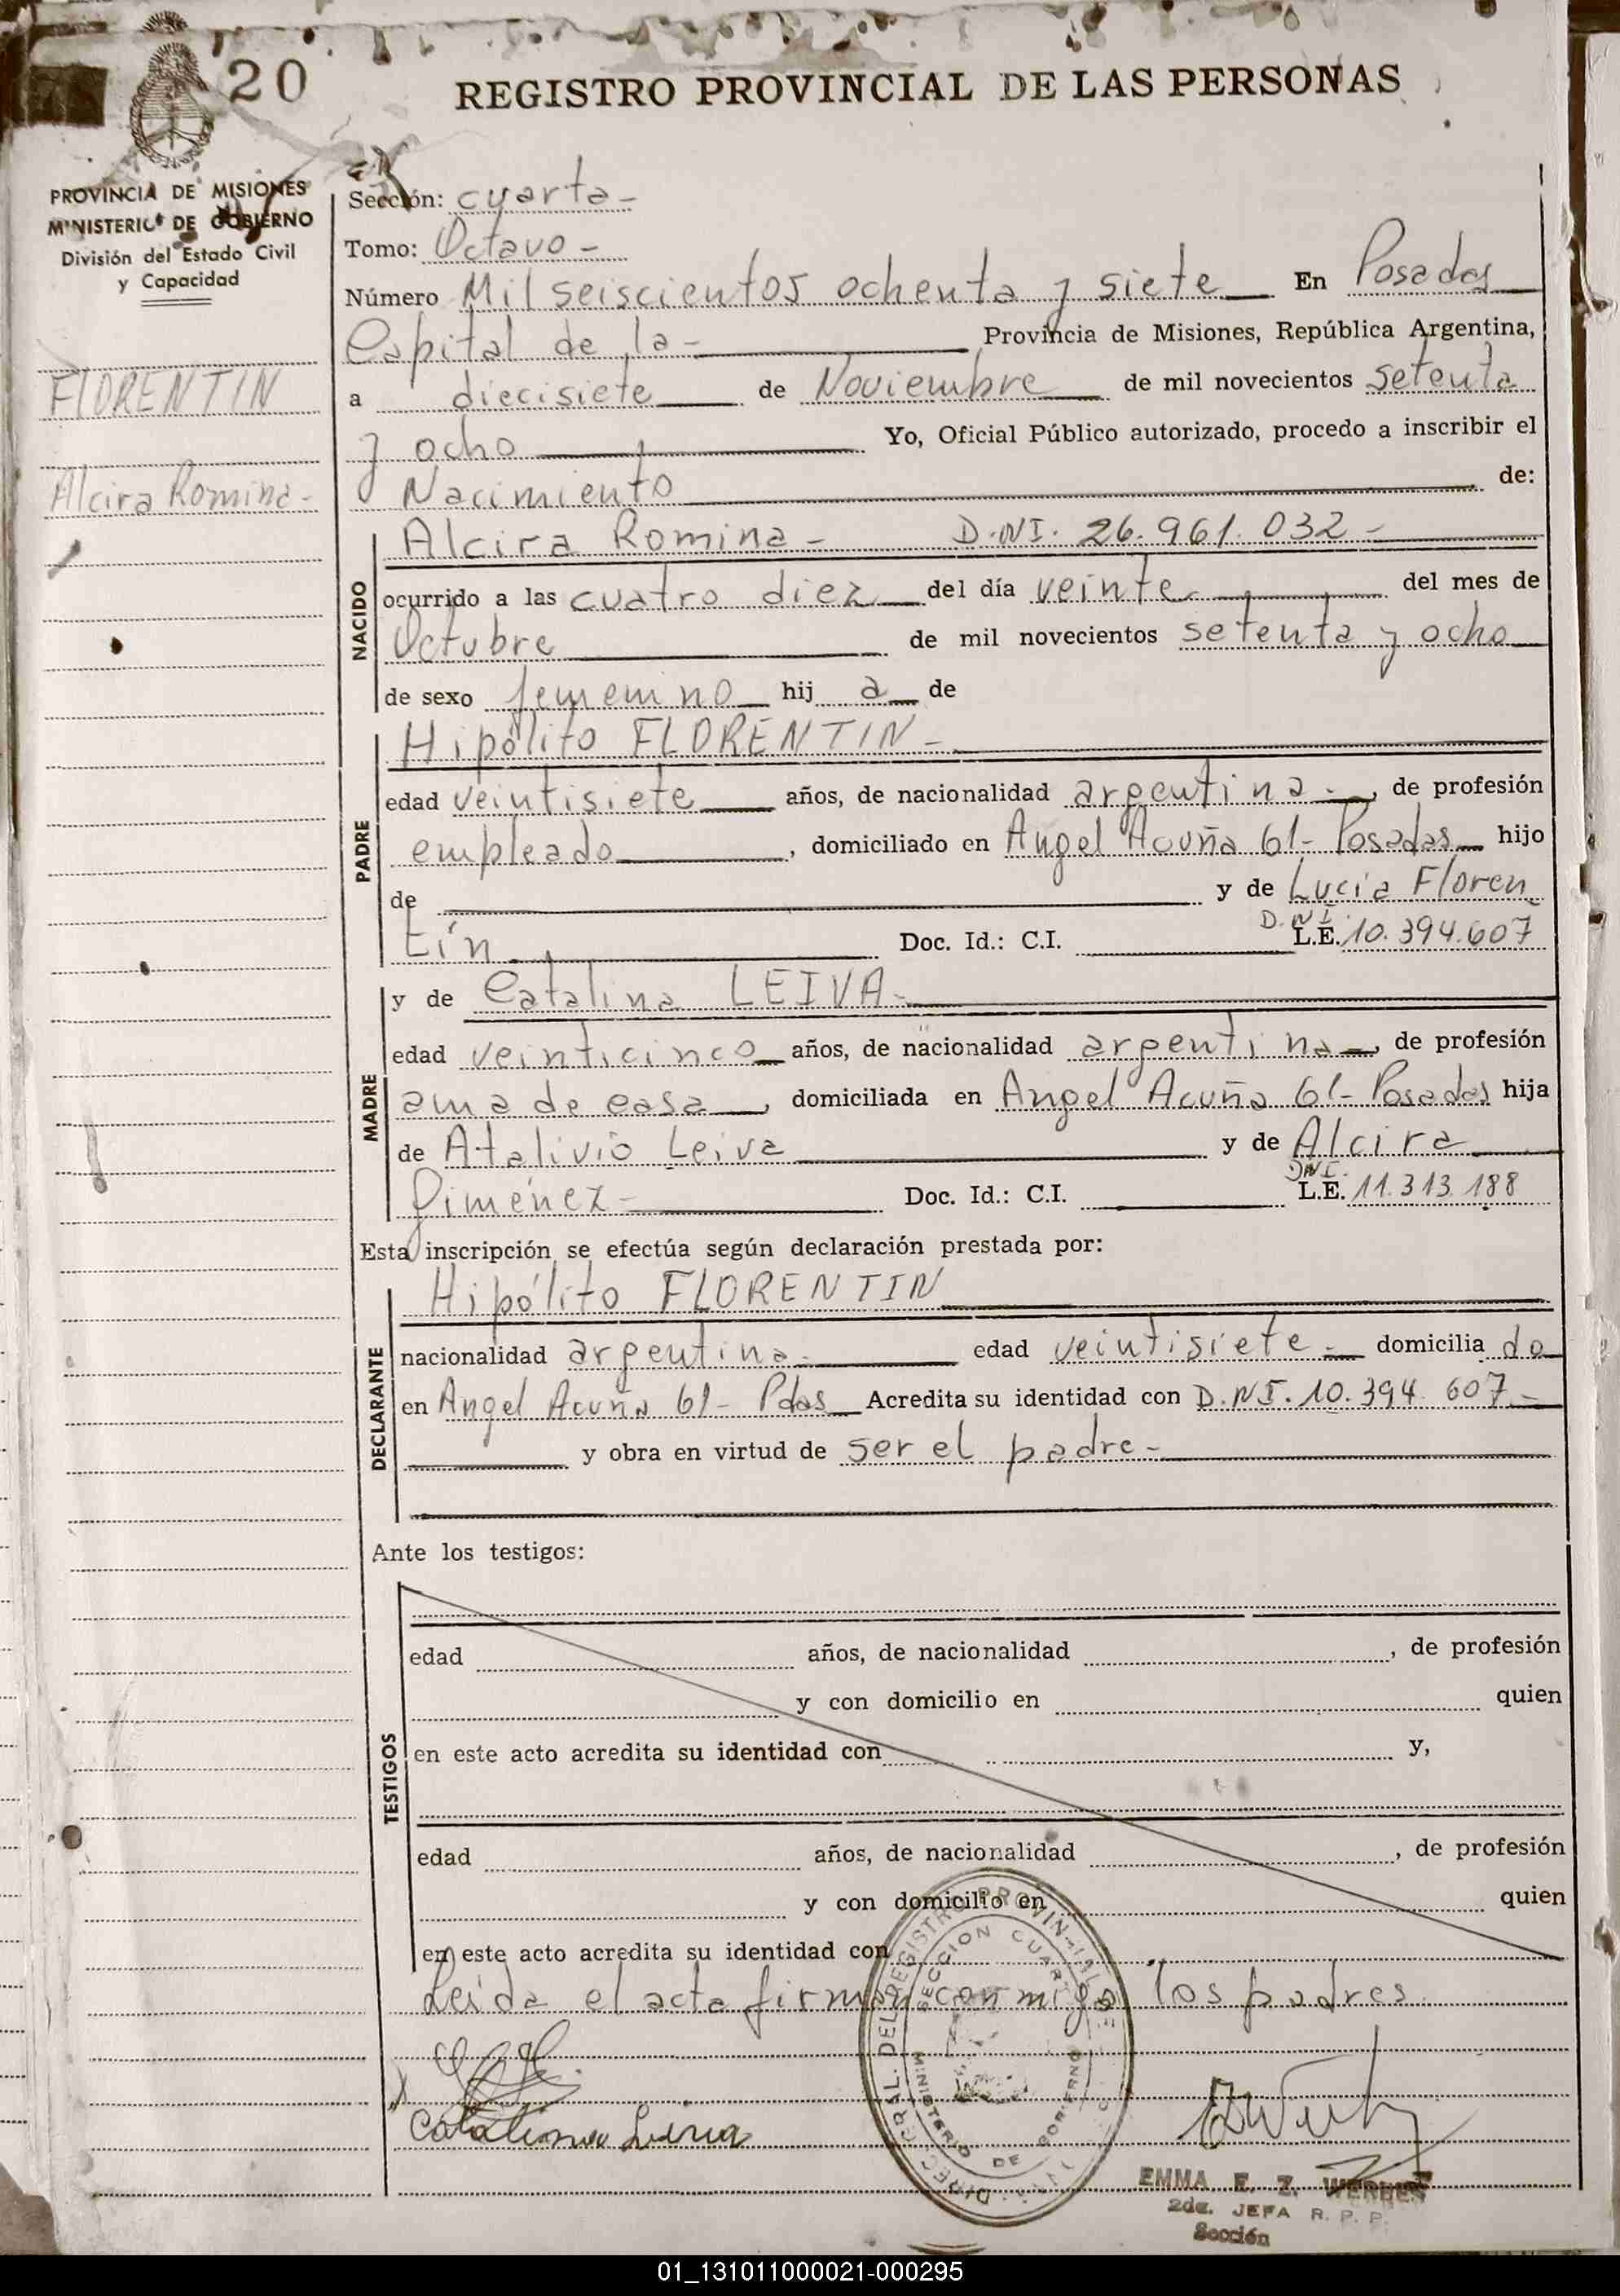 20
REGISTRO PROVINCIAL DE LAS PERSONAS
PROVINCIA DE MISIONES
MINISTERIO DE GOBIERNO
División del Estado Civil
y Capacidad
FLORENTIN
Alcira Romina-
Sección: cuarta-
Tomo: Octavo-
Número Mil seiscientos ochenta y siete En Posadas
Capital de la- Provincia de Misiones, República Argentina,
a diecisiete de Noviembre de mil novecientos setenta
y ocho Yo, Oficial Público autorizado, procedo a inscribir el
Nacimiento de:
NACIDO
Alcira Romina- D.NI. 26.961.032-
ocurrido a las cuatro diez del día veinte del mes de
Octubre de mil novecientos setenta y ocho
de sexo femenino hij a de
PADRE
Hipólito FLORENTIN-
edad veintisiete años, de nacionalidad argentina-, de profesión
empleado, domiciliado en Angel Acuña 61- Posadas hijo
de y de Lucia Floren
tín Doc. Id.: C.I. D.N.I. L.E. 10.394.607
MADRE
y de Catalina LEIVA-
edad veinticinco años, de nacionalidad argentina-, de profesión
ama de casa, domiciliada en Angel Acuña 61- Posadas hija
de Atalivio Leiva y de Alcira
Gimenez- Doc. Id.: C.I. DNI. L.E. 11.313.188
Esta inscripción se efectúa según declaración prestada por:
DECLARANTE
Hipólito FLORENTIN
nacionalidad argentina- edad veintisiete- domicilia do
en Angel Acuña 61- Pdas Acredita su identidad con D.NI. 10.394.607-
y obra en virtud de ser el padre-
Ante los testigos:
TESTIGOS
edad años, de nacionalidad , de profesión
y con domicilio en quien
en este acto acredita su identidad con y,
edad años, de nacionalidad , de profesión
y con domicilio en quien
en este acto acredita su identidad con
Leída el acta firman conmigo los padres
Catalina Leiva
SECCION CUARTA
MINISTERIO DE GOBIERNO
EMMA E. Z.
2da. JEFA R. P. P.
Sección
01_131011000021-000295